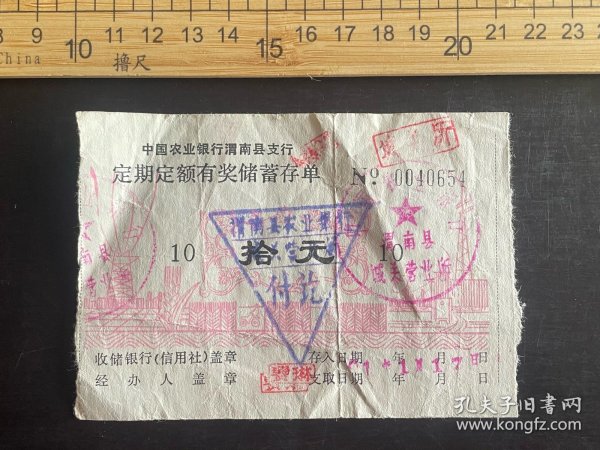 8 9 10 11 12 13 14 15 16 17 18 19 20 21 22 23
China
撸尺
中国农业银行渭南县支行
定期定额有奖储蓄存单
No 0040654
渭南县农业银行
10 拾元 10
付讫
渭南县
城关营业所
收储银行(信用社)盖章
存入日期 年 月 日
经办人盖章
支取日期 年 月 日
孔夫子旧书网
www.kongfz.com